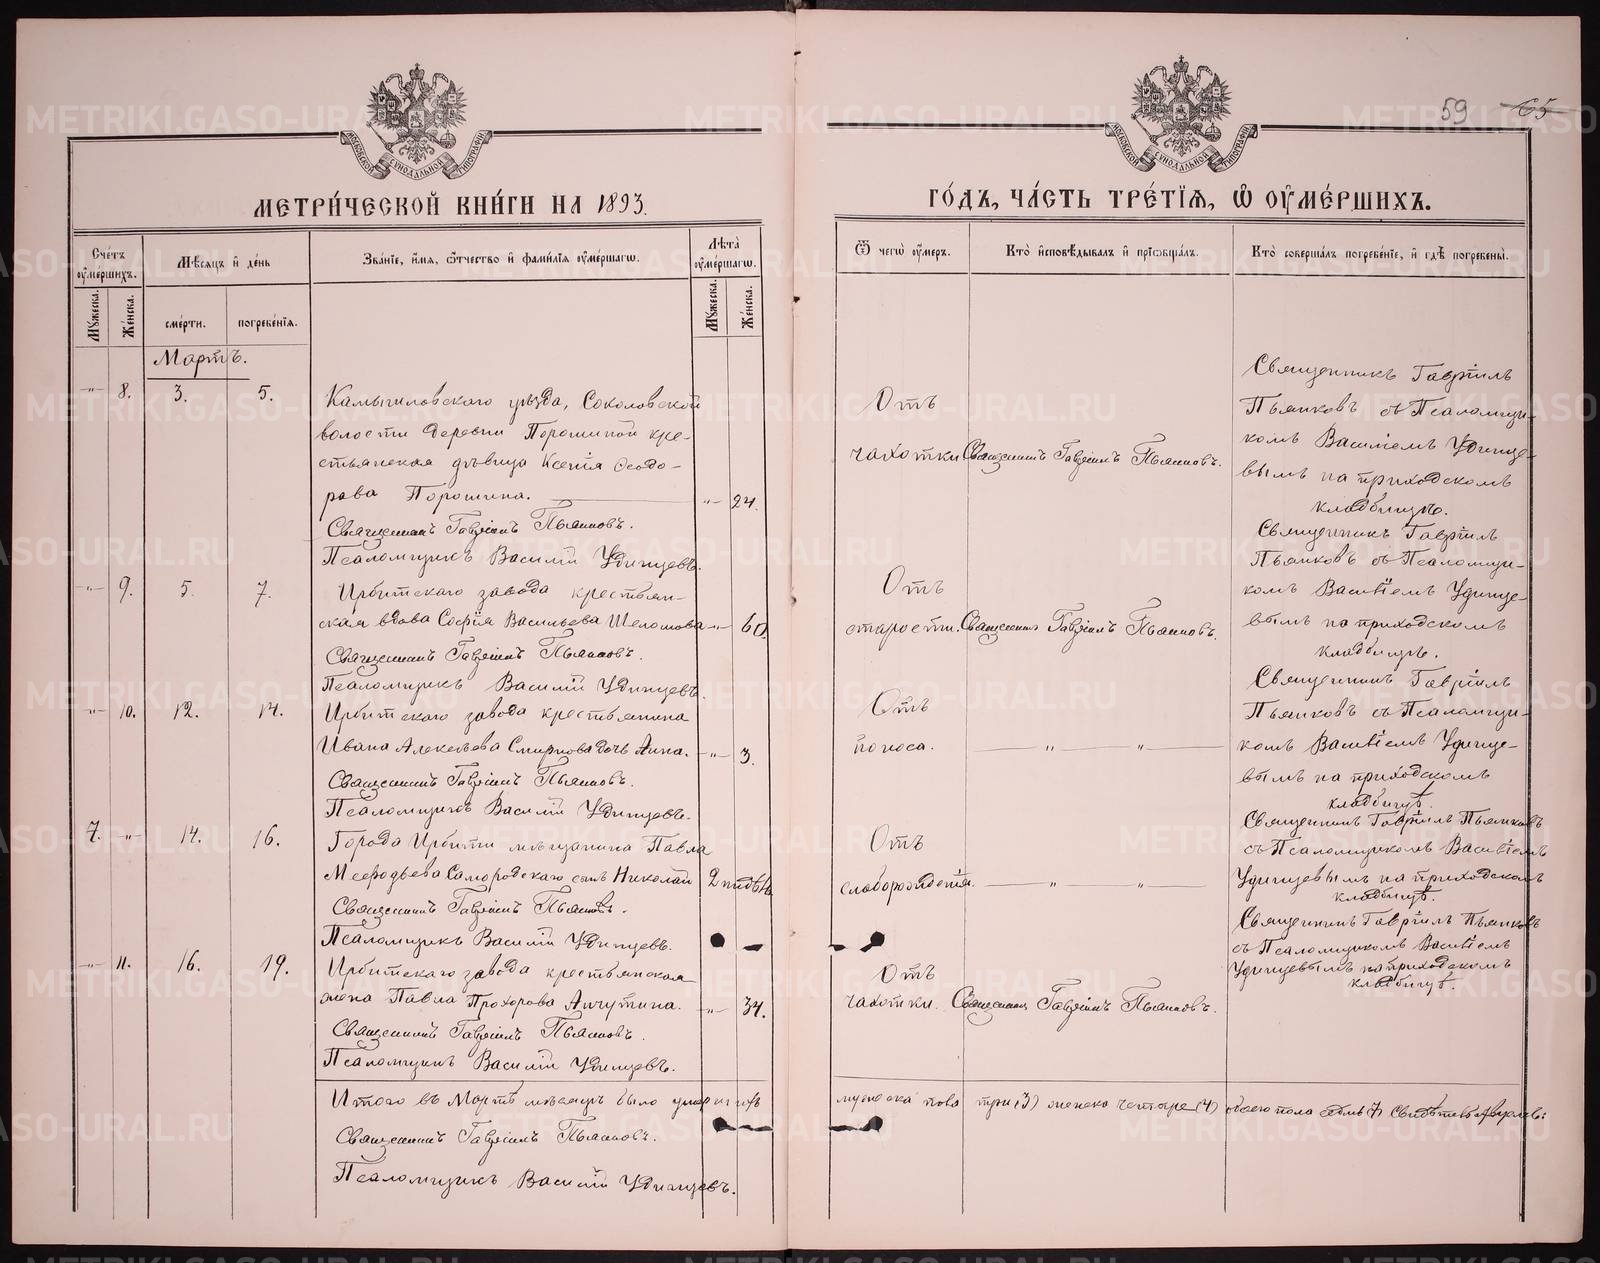 59 65
МЕТРИ́ЧЕСКОЙ КНИ́ГИ НА 1893.
ГО́ДЪ, ЧА́СТЬ ТРЕ́ТІЯ, Ѡ ОУМЕ́РШИХЪ.
Сче́тъ оуме́ршихъ.
Мѣ́сяцъ и де́нь
Зва́ніе, и́мя, ѻ́тчество и фами́лія оуме́ршагѡ.
Лѣта̀ оуме́ршагѡ.
Ѿ чегѡ̀ оу́меръ.
Кто̀ исповѣ́дывалъ и пріѻбща́лъ.
Кто̀ соверша́лъ погребе́ніе, и гдѣ̀ погребены̀.
Мꙋ́жеска.
Же́нска.
сме́рти.
погребе́нія.
Мꙋ́жеска.
Же́нска.
Мартъ.
-"- 8. 3. 5.
Камышловскаго уѣзда, Соколовской
волости деревни Порошиной кре-
стьянская дѣвица Ксенія Ѳеодо-
рова Порошина. -"- 24.
Священникъ Гавріилъ Пьянковъ.
Псаломщикъ Василій Удинцевъ.
Отъ
чахотки
Священникъ Гавріилъ Пьянковъ.
Священникъ Гавріилъ
Пьянковъ съ Псаломщи-
комъ Василіемъ Удинце-
вымъ на приходскомъ
кладбищѣ.
-"- 9. 5. 7.
Ирбитскаго завода крестьян-
ская вдова Софія Васильева Шеломова -"- 60
Священникъ Гавріилъ Пьянковъ.
Псаломщикъ Василій Удинцевъ.
Отъ
старости.
Священникъ Гавріилъ Пьянковъ.
Священникъ Гавріилъ
Пьянковъ съ Псаломщи-
комъ Василіемъ Удинце-
вымъ на приходскомъ
кладбищѣ.
-"- 10. 12. 14.
Ирбитскаго завода крестьянина
Ивана Алексѣева Смирнова дочь Анна. -"- 3.
Священникъ Гавріилъ Пьянковъ.
Псаломщикъ Василій Удинцевъ.
Отъ
поноса.
" "
Священникъ Гавріилъ
Пьянковъ съ Псаломщи-
комъ Василіемъ Удинце-
вымъ на приходскомъ
кладбищѣ.
7. -"- 14. 16.
Города Ирбити мѣщанина Павла
Меѳодьева Самородскаго сынъ Николай 2 нидѣль
Священникъ Гавріилъ Пьянковъ.
Псаломщикъ Василій Удинцевъ.
Отъ
слаборожденія.
" "
Священникъ Гавріилъ Пьянковъ
съ Псаломщикомъ Василіемъ
Удинцевымъ на приходскомъ
кладбищѣ.
-"- 11. 16. 19.
Ирбитскаго завода крестьянская
жена Павла Прохорова Анчутина. -"- 34.
Священникъ Гавріилъ Пьянковъ.
Псаломщикъ Василій Удинцевъ.
Отъ
чахотки.
Священникъ Гавріилъ Пьянковъ.
Священникъ Гавріилъ Пьянковъ
съ Псаломщикомъ Василіемъ
Удинцевымъ на приходскомъ
кладбищѣ.
Итого въ Мартѣ мѣсяцѣ было умершихъ мужеска пола три (3) женска четыре (4) обоего пола семь (7)
Священникъ Гавріилъ Пьянковъ.
Псаломщикъ Василій Удинцевъ.